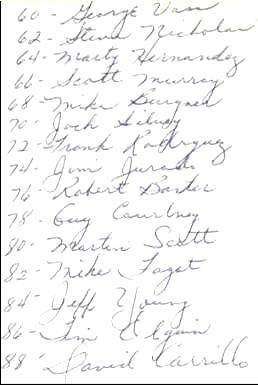 60 - George Vass
62 - Steve Nicholas
64 - Marty Hernandez
66 - Scott Murray
68 - Mike
70 - Jack
72 - Frank Rodrguez
74 - Jim
76 - Robert
78 - Guy Courtney
80 - Martin Scott
82 - Mike
84 - Jeff Young
86 - Tim
88 - David Carrillo